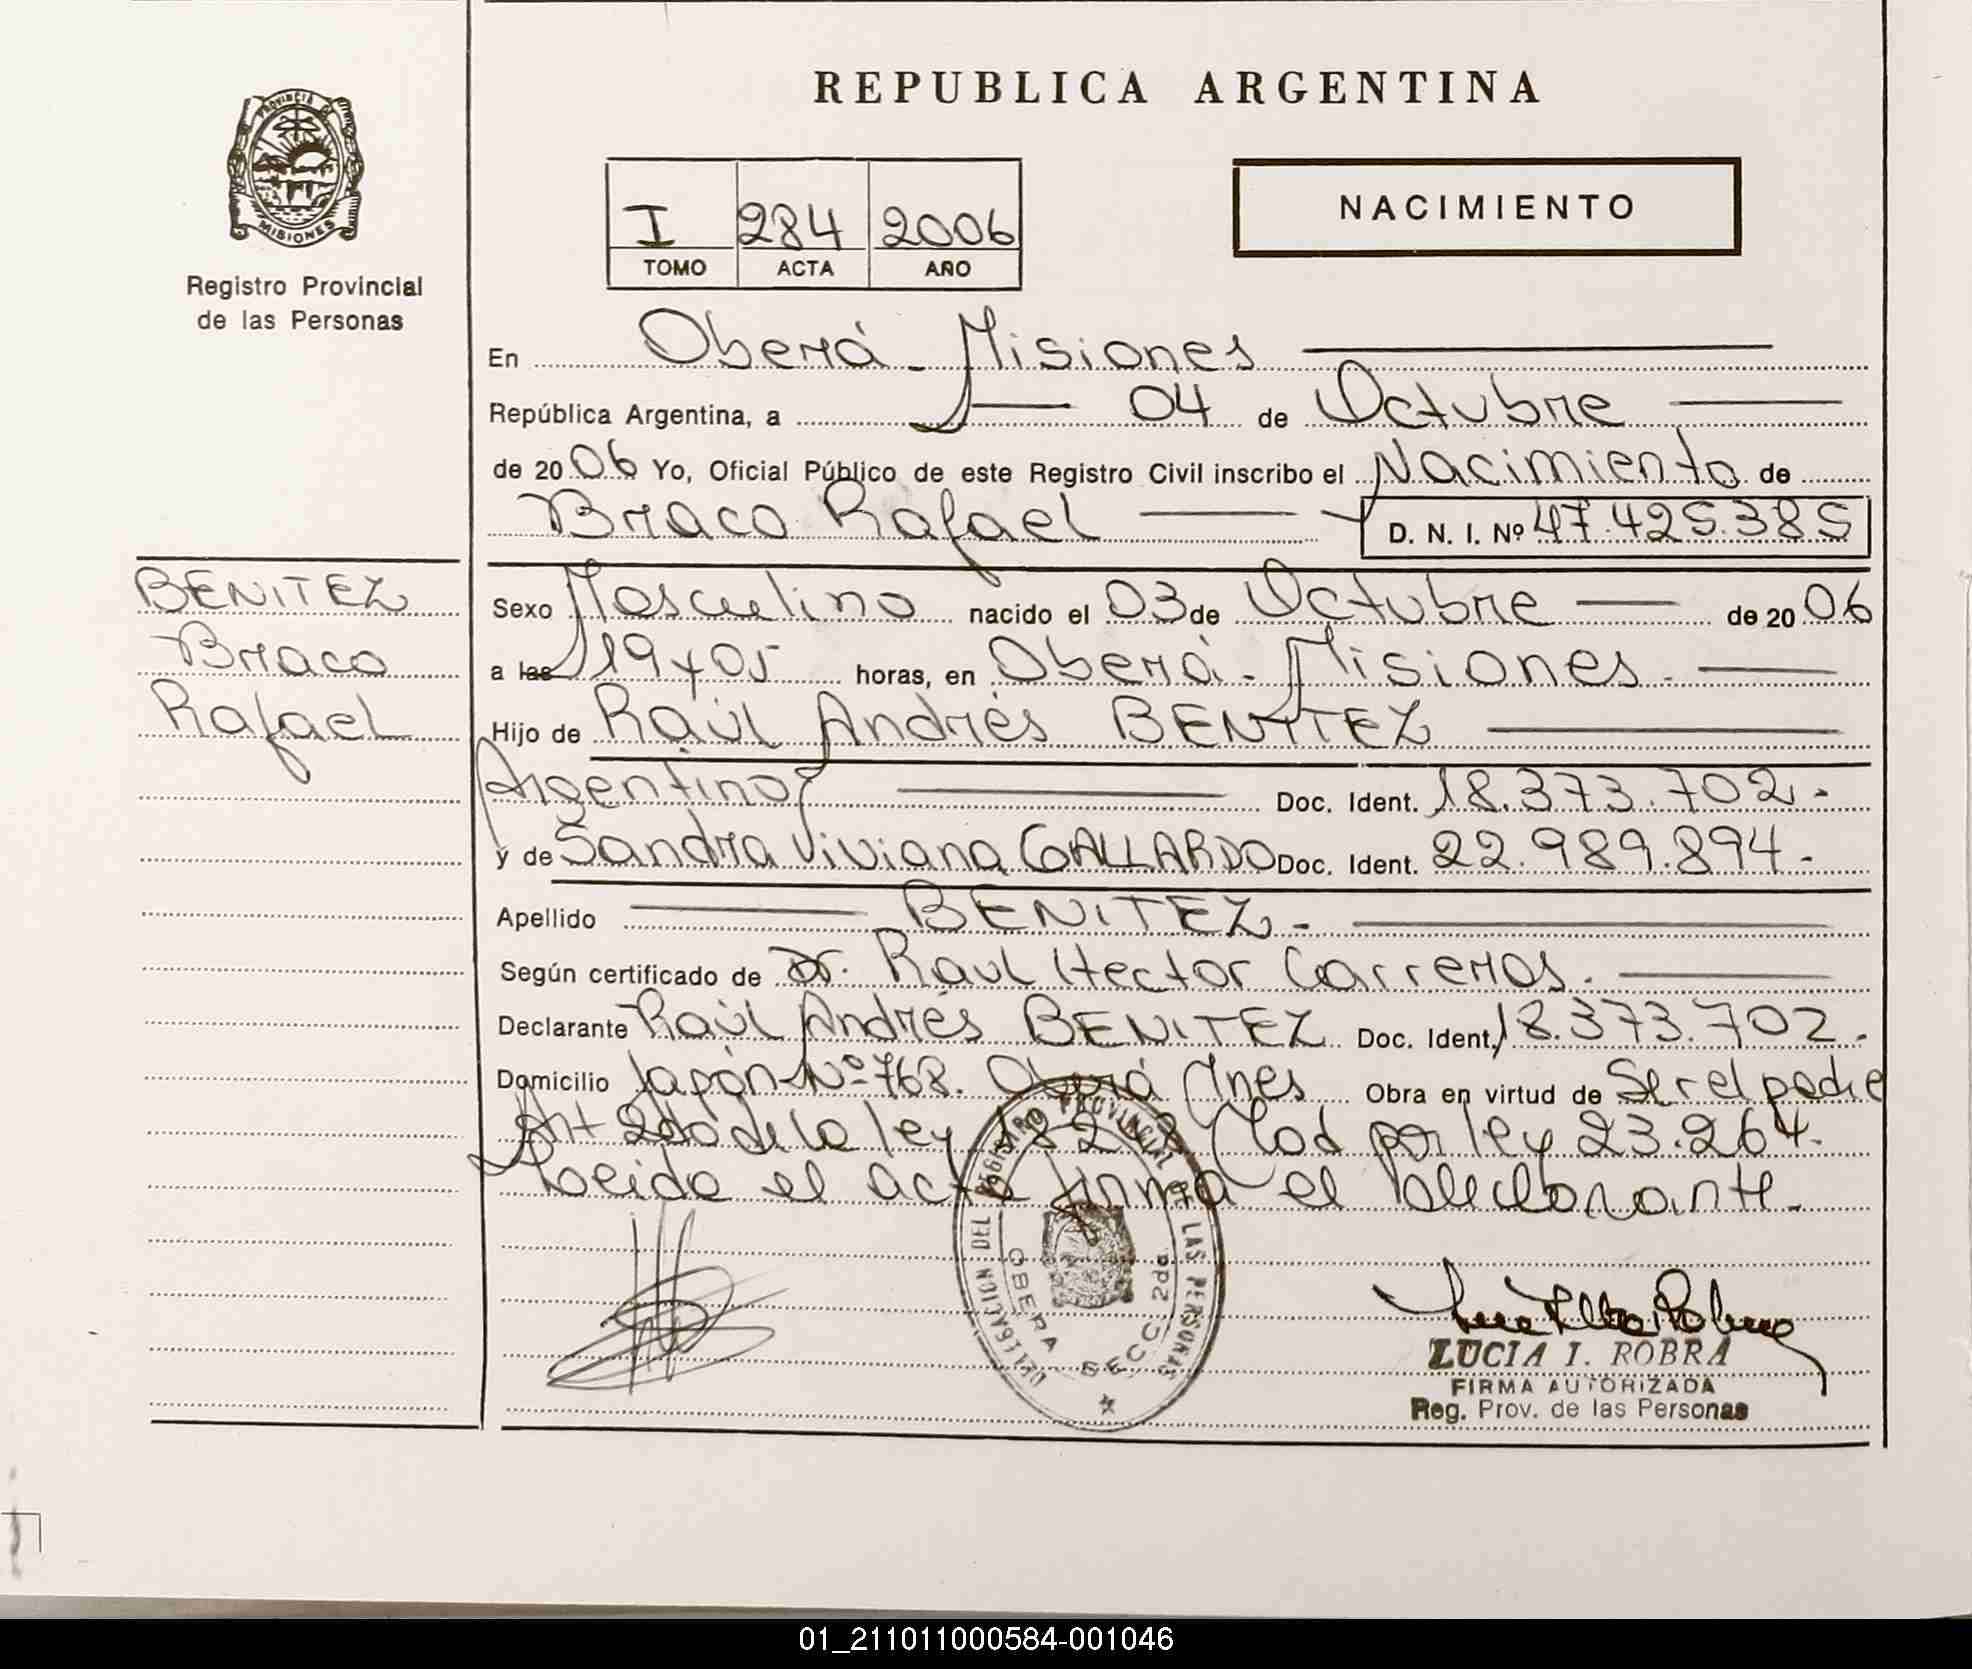 REPUBLICA ARGENTINA
PROVINCIA D
MISIONES
Registro Provincial
de las Personas
I 284 2006
TOMO ACTA AÑO
NACIMIENTO
En Oberá - Misiones
República Argentina, a 04 de Octubre
de 2006 Yo, Oficial Público de este Registro Civil inscribo el Nacimiento de
Braco Rafael D. N. I. Nº 47.425.385
BENITEZ
Braco
Rafael
Sexo Masculino nacido el 03 de Octubre de 2006
a las 19 y 05 horas, en Oberá - Misiones
Hijo de Raúl Andrés BENITEZ
Argentino Doc. Ident. 18.373.702.-
y de Sandra Viviana GALLARDO Doc. Ident. 22.989.894.-
Apellido BENITEZ.-
Según certificado de Dr. Raul Hector Carreras.
Declarante Raúl Andrés BENITEZ Doc. Ident. 18.373.702.-
Domicilio Japón Nº 768. Oberá Mnes Obra en virtud de Ser el padre
Art 2do de la ley Mod por ley 23.264.
Leida el acta firma el declarante.-
DELEGACION DEL REGISTRO PROVINCIAL DE LAS PERSONAS
OBERA SECC. 2da
LUCIA I. ROBRA
FIRMA AUTORIZADA
Reg. Prov. de las Personas
01_211011000584-001046